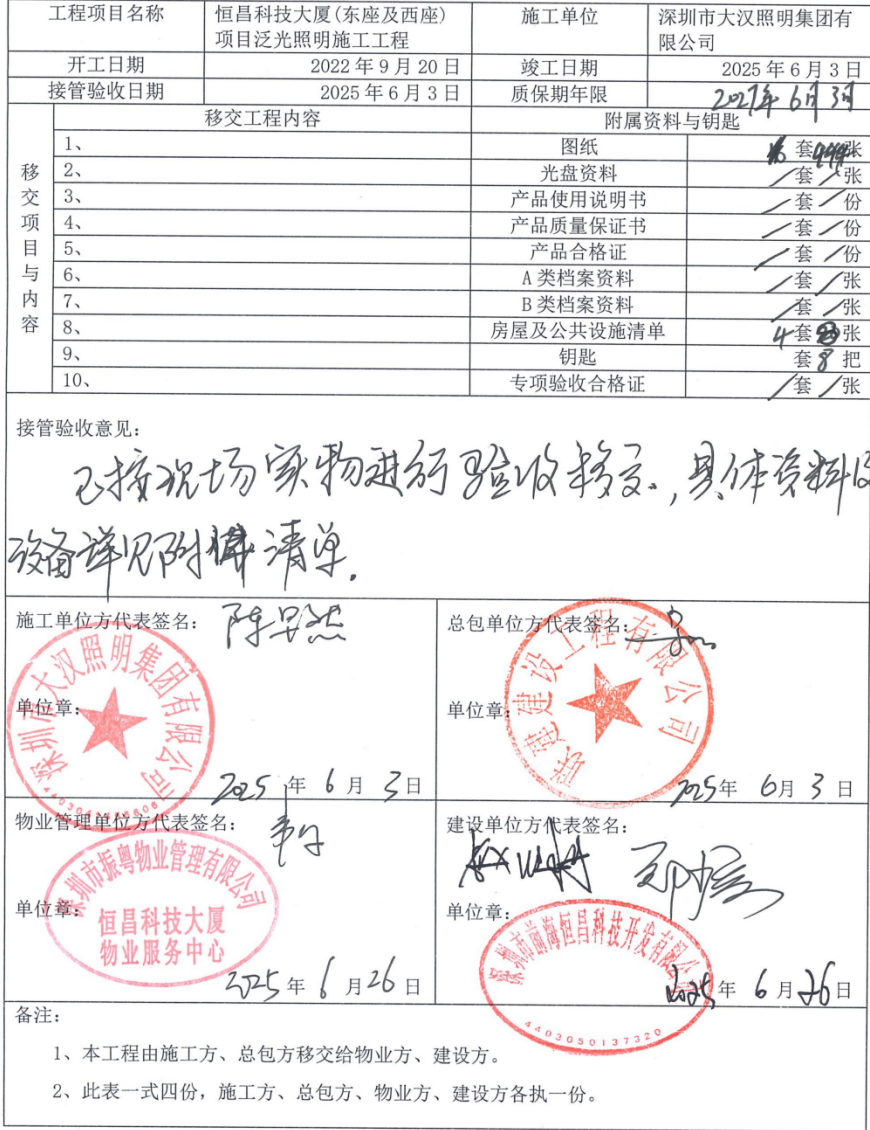 工程项目名称 恒昌科技大厦(东座及西座) 施工单位 深圳市大汉照明集团有
项目泛光照明施工工程 限公司
开工日期 2022年9月20日 竣工日期 2025年6月3日
接管验收日期 2025年6月3日 质保期年限 2027年6月3日
移交项目与内容
移交工程内容 附属资料与钥匙
1、 图纸 套 张
2、 光盘资料 /套/张
3、 产品使用说明书 /套/份
4、 产品质量保证书 /套/份
5、 产品合格证 /套/份
6、 A类档案资料 /套/张
7、 B类档案资料 /套/张
8、 房屋及公共设施清单 4套 张
9、 钥匙 套8把
10、 专项验收合格证 /套/张
接管验收意见:
已按现场实物进行验收移交,具体资料及
设备详见附件清单.
施工单位方代表签名:
单位章:
深圳市大汉照明集团有限公司
2025年6月3日
总包单位方代表签名:
单位章:
联建建设工程有限公司
2025年6月3日
物业管理单位方代表签名:
单位章:
深圳市振粤物业管理有限公司
恒昌科技大厦
物业服务中心
2025年6月26日
建设单位方代表签名:
单位章:
深圳市前海恒昌科技开发有限公司
4403050137320
2025年6月26日
备注:
1、本工程由施工方、总包方移交给物业方、建设方。
2、此表一式四份,施工方、总包方、物业方、建设方各执一份。